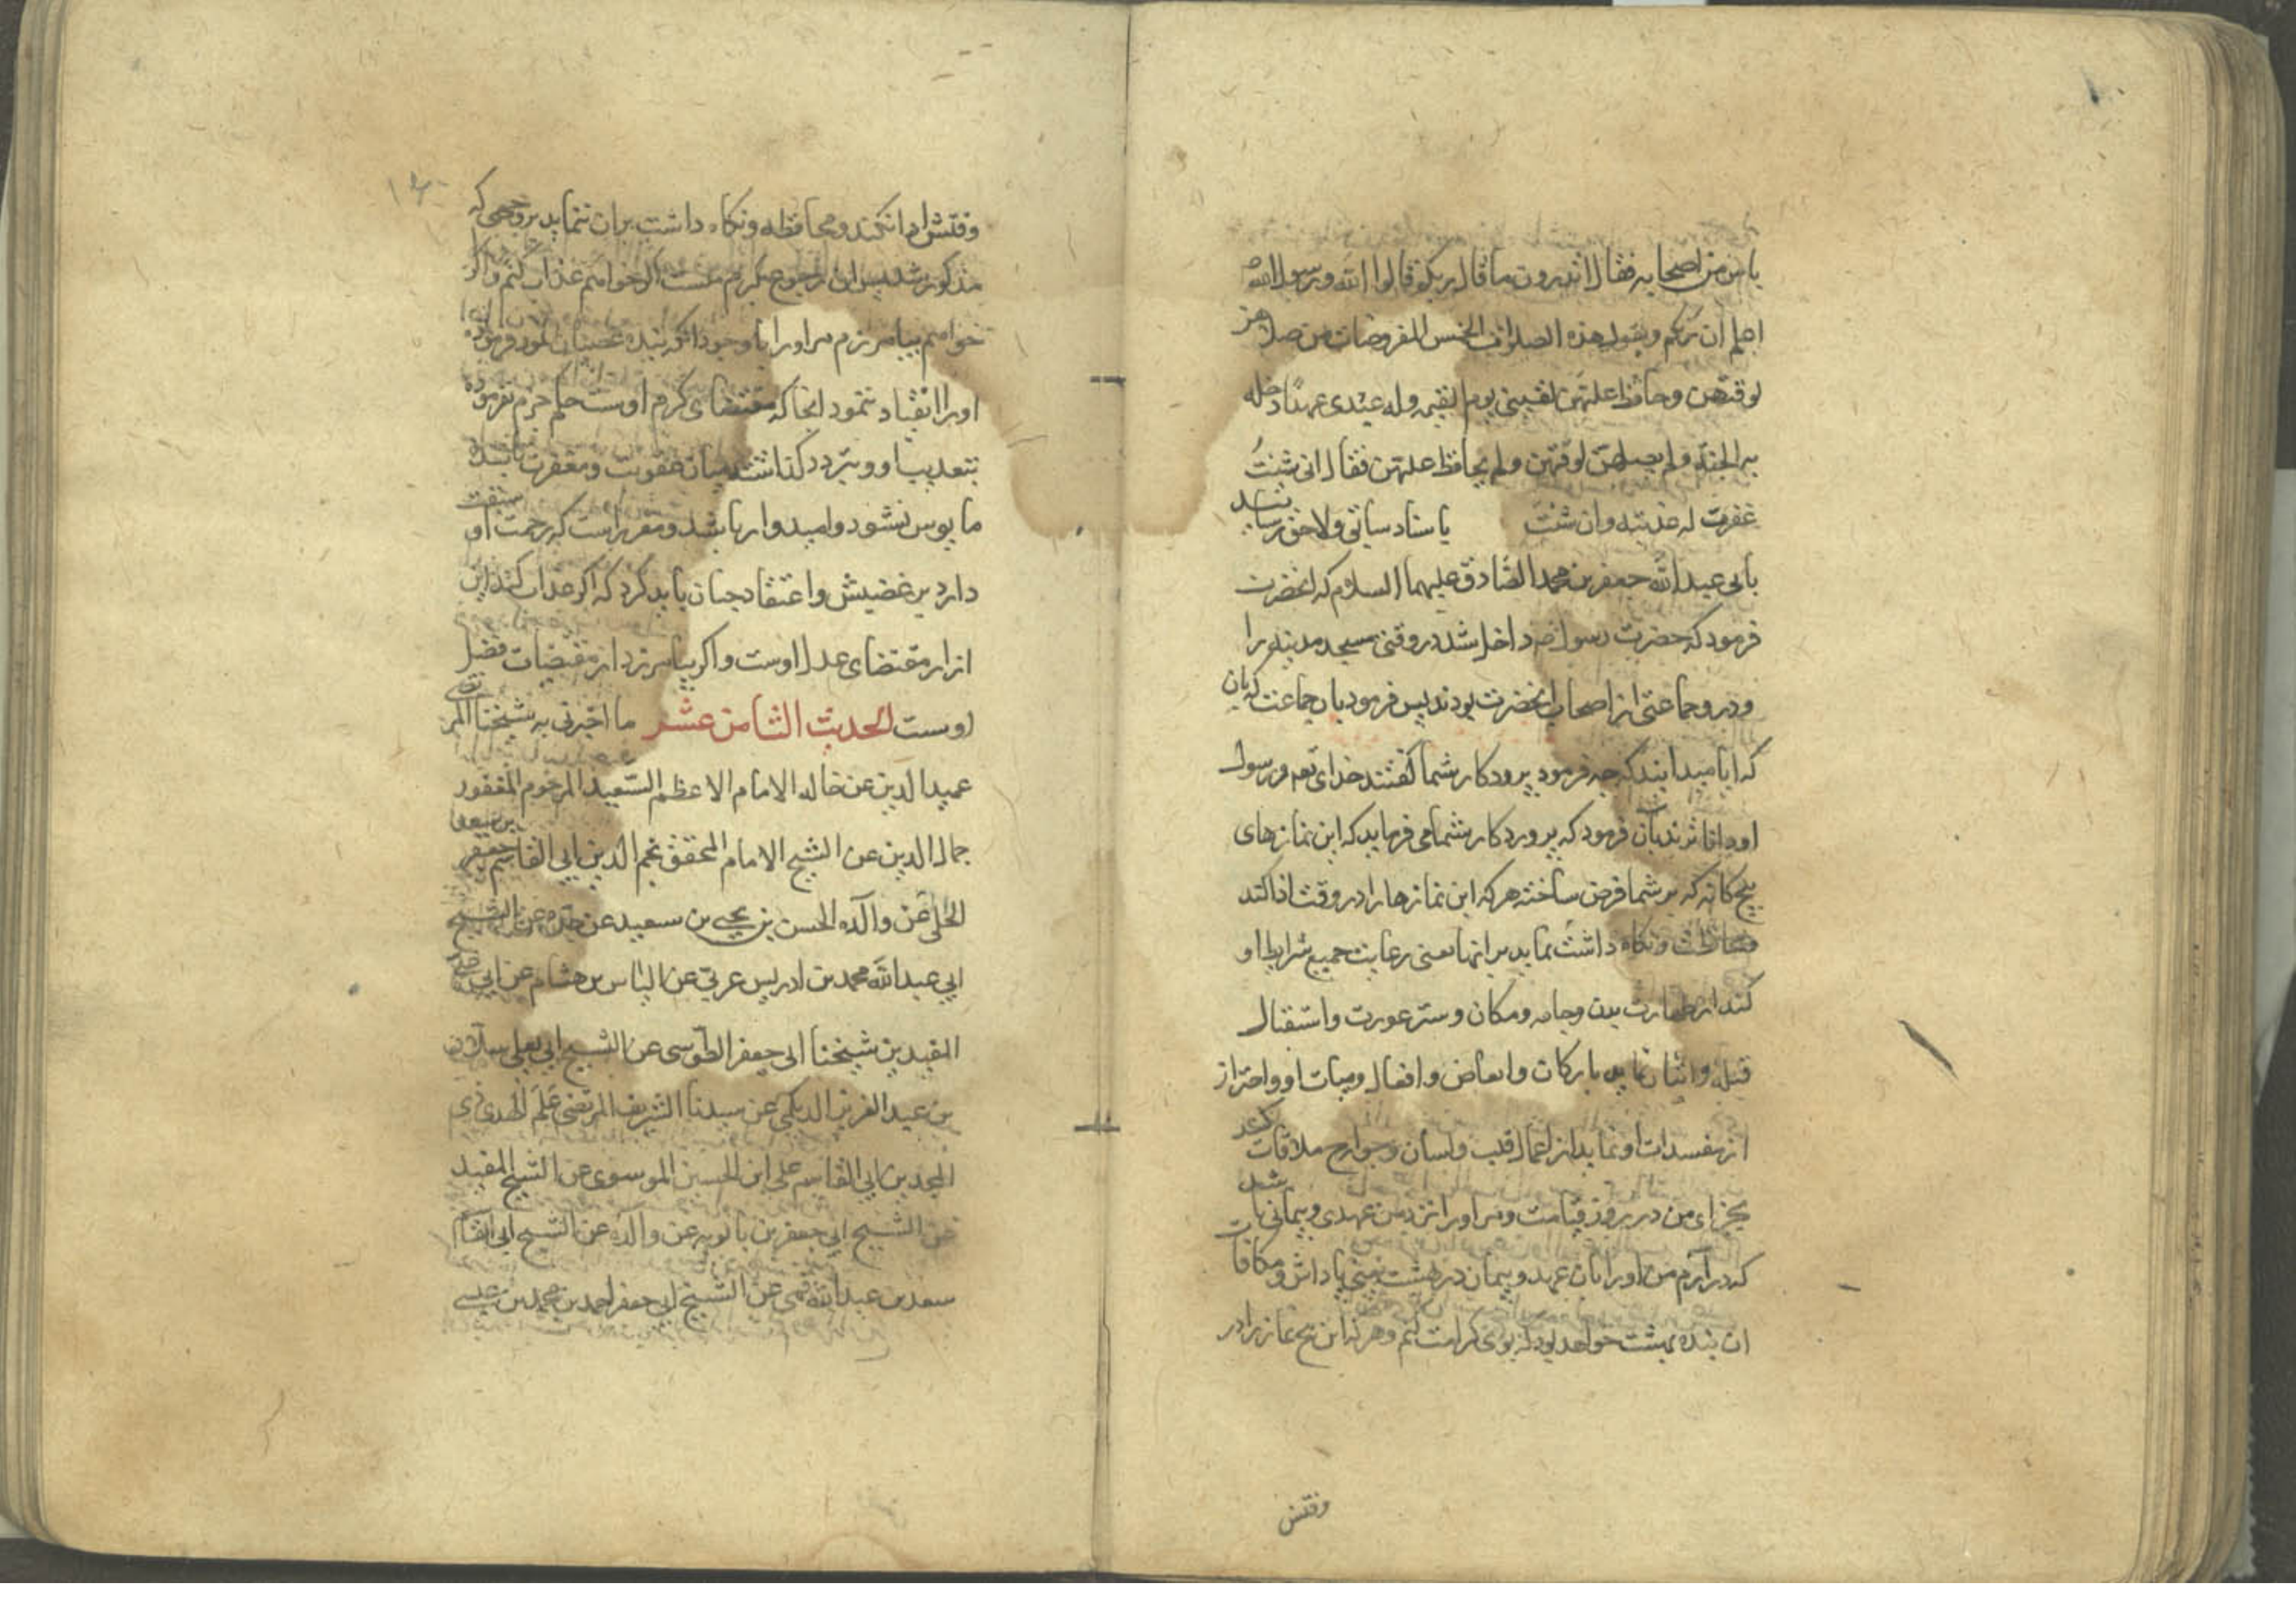 ناس من اصحابه فقال اتدرون ما قال ربكم قالوا الله ورسوله
اعلم ان ربكم يقول هذه الصلوات الخمس المفروضات من صلاهن
لوقتهن وحافظ علیهن لقینی یوم القیمه وله عندی عهدا دخله
به الجنة ولم یصلهن لوقتهن ولم یحافظ علیهن فقال انی شئت
غفرت له عذبته وان شئت باسناد سابق ولاحق رسانید
بابی عبدالله جعفر بن محمد الصادق علیهما السلام که انحضرت
فرمود که حضرت رسول ص داخل شد در وقتی مسجد مدینه را
و در و جماعتی از اصحاب انحضرت بودند پس فرمود بان جماعت که
که ایا میدانید که چه فرمود پرودکار شما کفتند خدای تعه و رسول
او فرمود که پروردکار شما می فرماید که این نمازهای
پنج کانه که بر شما فرض ساخته هر که این نمازها را در وقت ادا کند
و نکاه داشت نماید بر انها یعنی رعایت جمیع شرایط او
کند از طهارت بدن و جامه و مکان و ستر عورت و استقبال
قبله و اتیان نماید بارکان و ابعاض و افعال و او و احتراز
از مفسدات او نماید از اعمال قلب و لسان و جوارح ملاقات کند
بجزای من در روز قیامت و مر اورا نزد من عهدی و پیمانی باشد
که درآرم من اورا بان عهد و پیمان در بهشت یعنی پاداش و مکافات
ان بنده بهشت خواهد بود که بوی کرامت کنم و هر که این پنج نماز را در
وقتش
وقتش ادا نکند و محافظه و نکاه داشت بران ننماید بر وجهی که
مذکور شد پس این رجوع بکرم منست اکر خواهم عذاب کنم و اکر
خواهم بیامرزم مر اورا با وجود انکه بنده عصیان نمود فرموده
اورا انقیاد ننمود انجا که مقتضای کرم اوست حکم جزم نفرموده
بتعذیب او و تردد کذاشته میان عقوبت و مغفرت تا بنده
مایوس نشود و امیدوار باشد و مقرر است که رحمت او سبقت
دارد بر غضبش و اعتقاد چنان باید کرد که اکر عذاب کند این
از ار مقتضای عدل اوست و اکر بیامرزد از مقتضیات فضل
اوست الحدیث الثامن عشر ما اخبرنی به شیخنا المرتضی
عمید الدین عن خاله الامام الاعظم السعید المرحوم المغفور
جمال الدین عن الشیخ الامام المحقق نجم الدین ابی القاسم جعفر بن سعید
الحلی عن والده الحسن بن یحیی بن سعید عن جده عن الشیخ
ابی عبدالله محمد بن ادریس عن الیاس بن هشام عن ابی علی
المفید بن شیخنا ابی جعفر الطوسی عن الشیخ ابی یعلی سلار
بن عبد العزیز الدیلمی عن سیدنا الشریف المرتضی علم الهدی ذی
المجدین ابی القاسم علی ابن الحسین الموسوی عن الشیخ المفید
عن الشیخ ابی جعفر بن بابویه عن والده عن الشیخ ابی القاسم
سعد بن عبدالله قمی عن الشیخ ابی جعفر احمد بن محمد بن عیسی